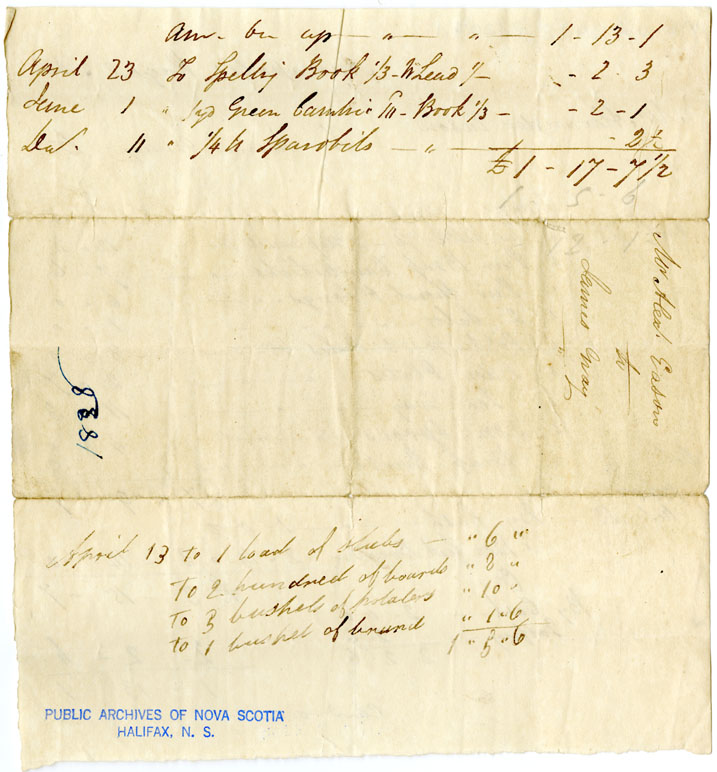 Am. bn up — " — " — 1 - 13 - 1
April 23 To Spellig Book 1/3 - W Lead 1/- - 2 - 3
June 1 " 1 yd Green Cambric - Book 1/3 - - 2 - 1
Do. 11 " 1/4 lb Sparobils — " — - 2 1/2
£ 1 - 17 - 7 1/2
Mr Alexr. Eason
to
James Gray
1888
April 13 to 1 load of slabs — " 6 "
To 2 hundred of boards " 8 "
To 3 bushels of potaters " 10 "
to 1 bushel of " 1 " 6
1 " 5 " 6
PUBLIC ARCHIVES OF NOVA SCOTIA
HALIFAX, N. S.